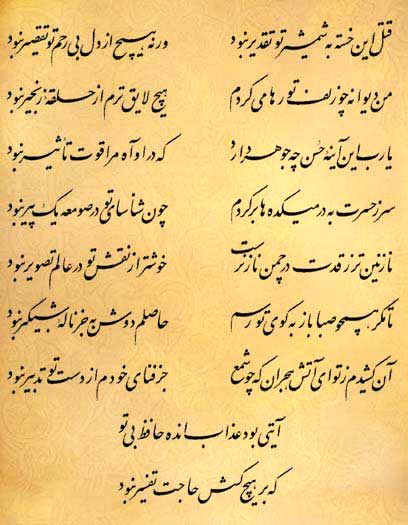 قتل این خسته به شمشیر تو تقدیر نبود ورنه هیچ از دل بی رحم تو تقصیر نبود
من دیوانه چو زلف تو رها می کردم هیچ لایق ترم از حلقهٔ زنجیر نبود
یارب این آینه حُسن چه جوهر دارد که در او آه مرا قوت تأثیر نبود
سر ز حسرت به در میکده ها بر کردم چون شناسای تو در صومعه یک پیر نبود
نازنین تر ز قدت در چمن ناز نرست خوشتر از نقش تو در عالم تصویر نبود
تا مگر همچو صبا باز به کوی تو رسم حاصلم دوش به جز نالهٔ شبگیر نبود
آن کشیدم ز تو ای آتش هجران که چو شمع جز فنای خودم از دست تو تدبیر نبود
آیتی بود عذاب انده حافظ بی تو
که بر هیچ کسش حاجت تفسیر نبود